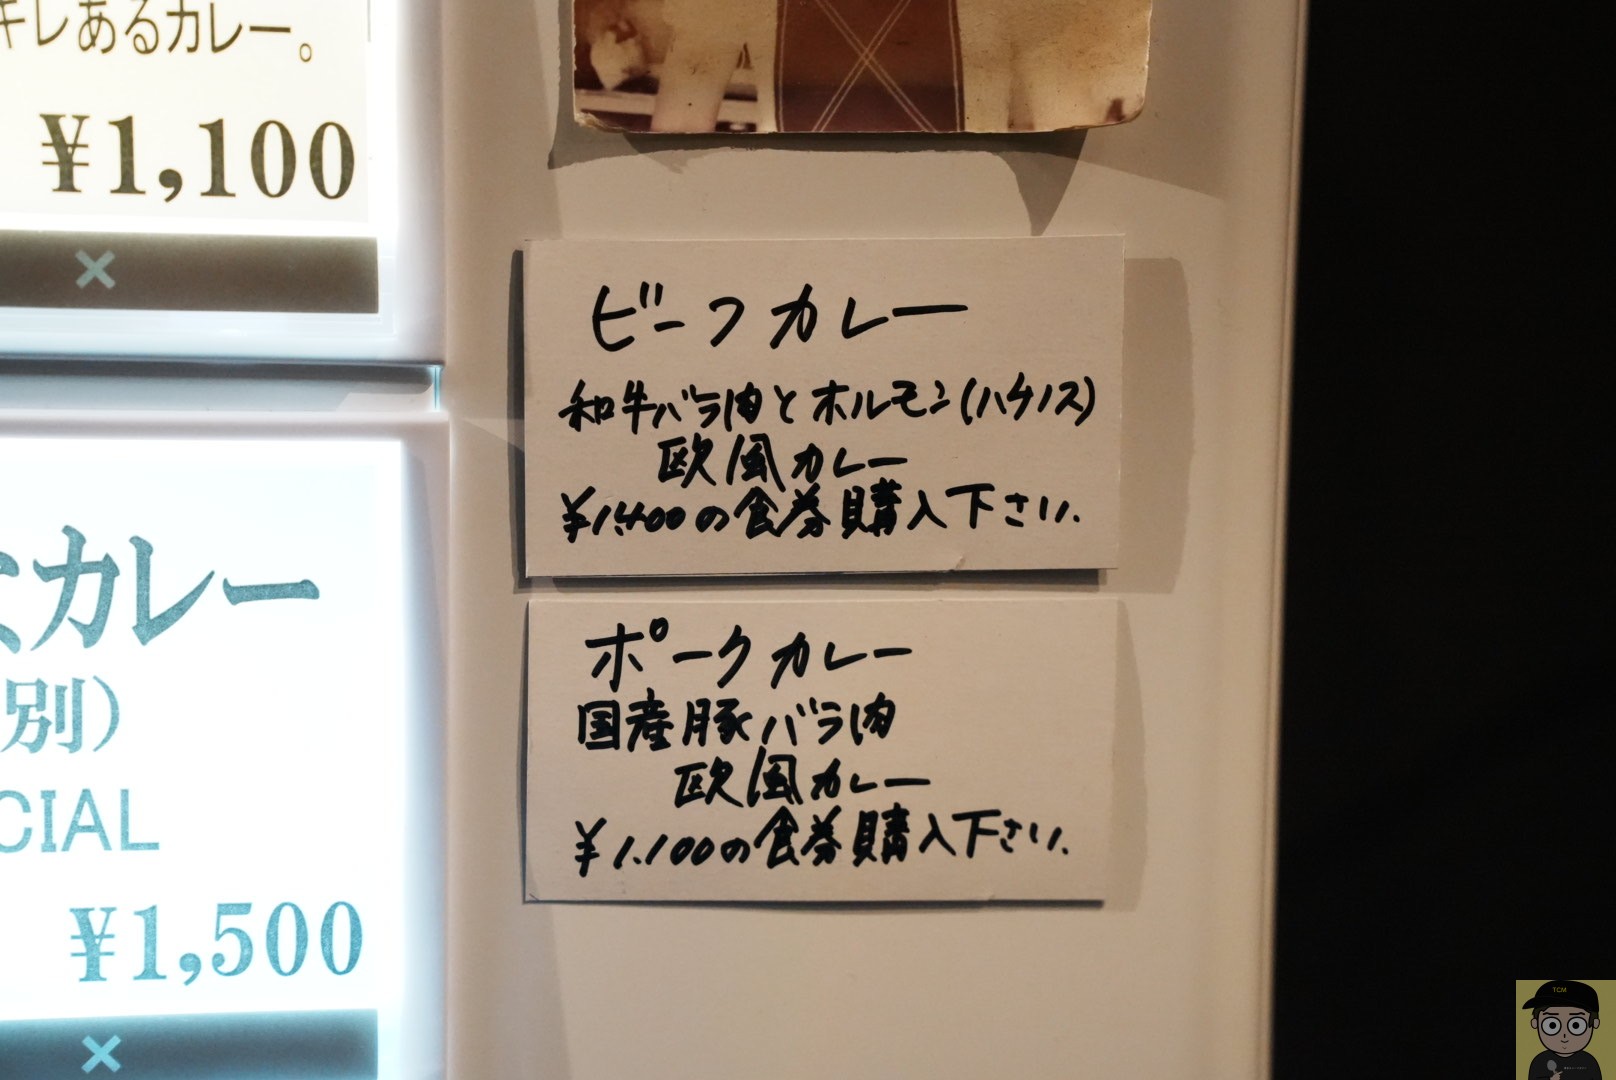 キレあるカレー。
¥1,100
×
カレー
別)
CIAL
¥1,500
×
ビーフカレー
和牛バラ肉とホルモン(ハチノス)
欧風カレー
¥1,400の食券購入下さい.
ポークカレー
国産豚バラ肉
欧風カレー
¥1.100の食券購入下さい.
TCM